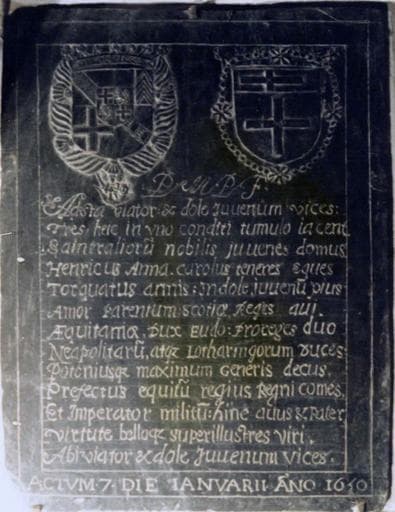 D. M. P. F.
Adsta viator & dole Juvenum vices:
Tres heic in vno conditi tumulo iacent
Saintraliorū nobilis juvenes domus
Henricus Anna. carolus teneres eques
Torquatus armis: Indole juvenū pius
Amor parentum: scotiæ Reges aui,
Æquitaniæ, Dux Eudo: Proceres duo
Neapolitarū, atq Lotharingorum duces
Potoniusq maximum generis decus.
Prefectus equitū regius Regni comes,
Et Imperator militū: hinc auus & Pater
virtute belloq superillustres viri.
Abi viator & dole Juvenum vices.
ACTVM·7·DIE IANVARII ĀNO 1610